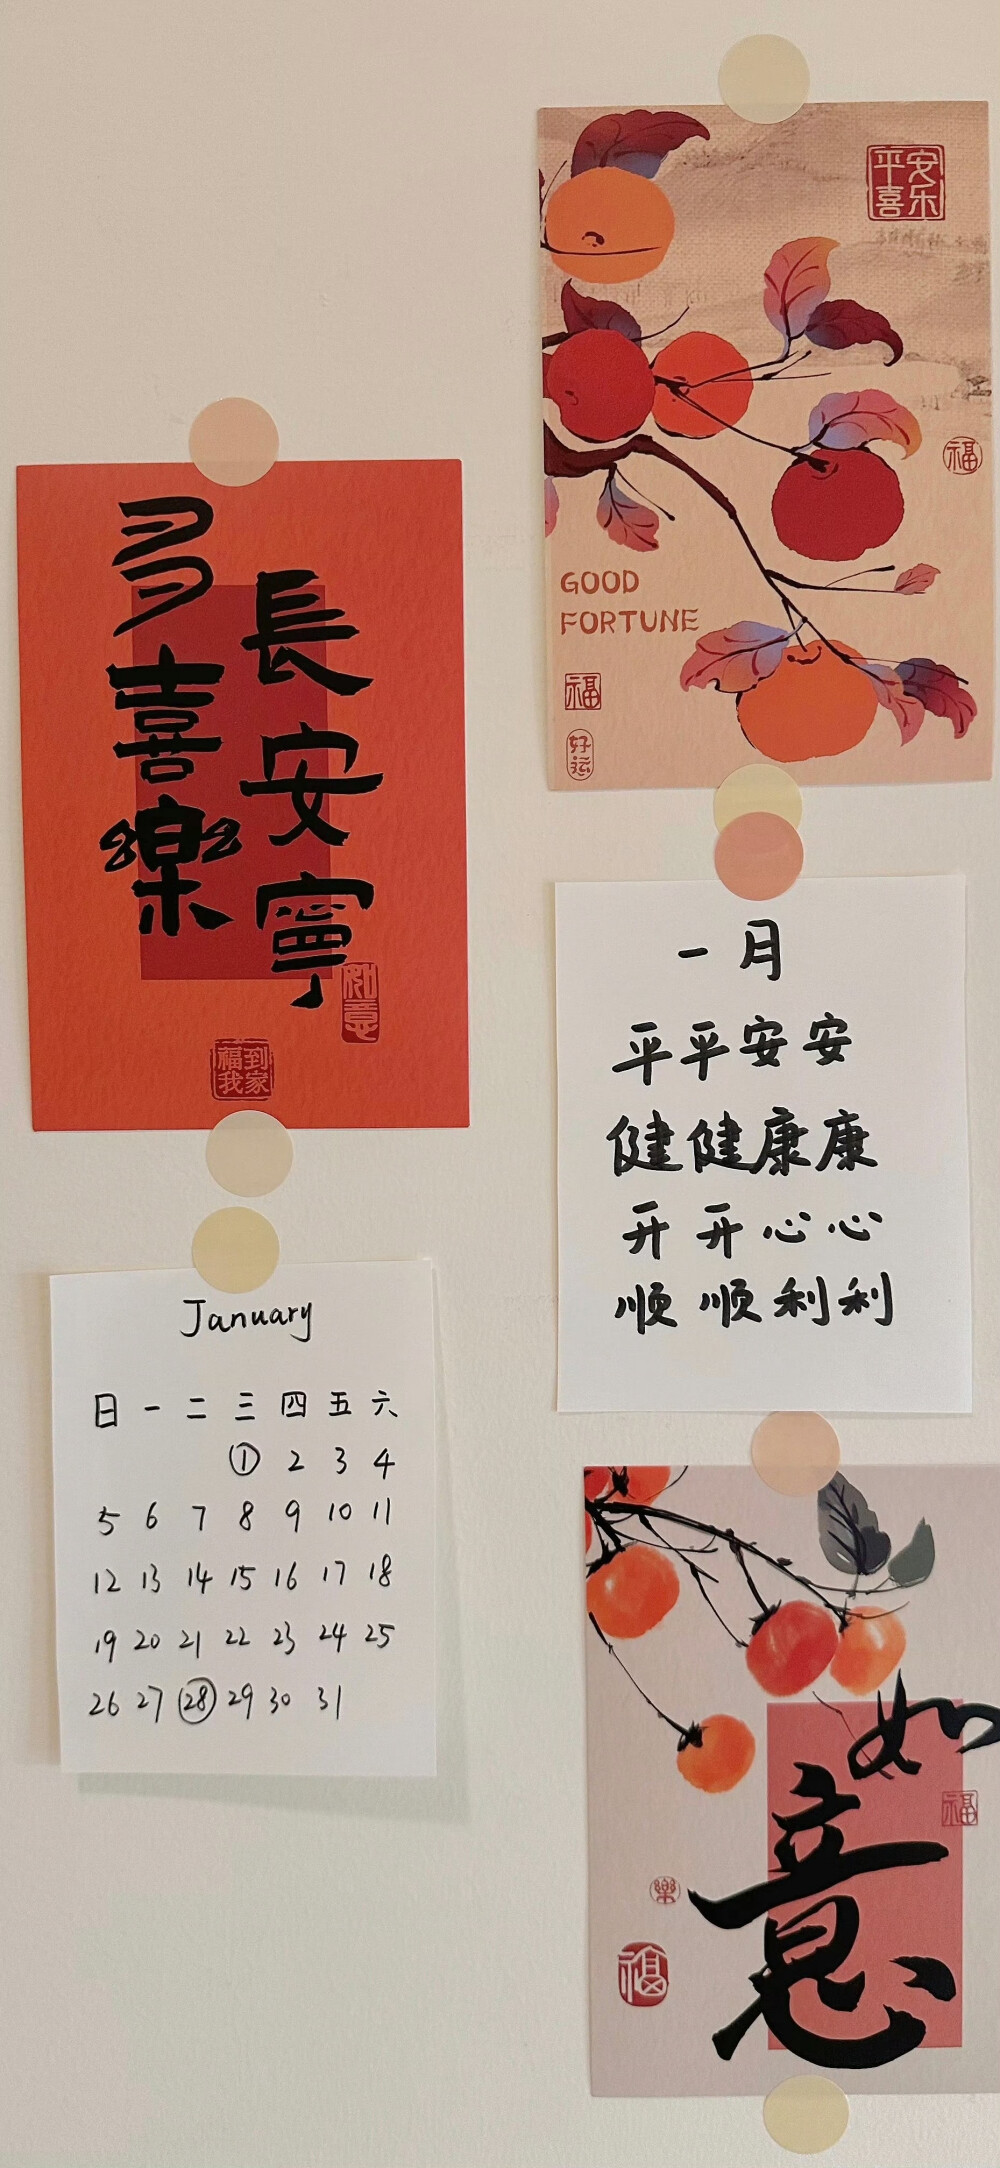 多喜樂
長安寧
如意
福到
我家
January
日 一 二 三 四 五 六
1 2 3 4
5 6 7 8 9 10 11
12 13 14 15 16 17 18
19 20 21 22 23 24 25
26 27 28 29 30 31
平安
喜乐
福
GOOD
FORTUNE
福
好运
一月
平平安安
健健康康
开开心心
顺顺利利
如意
福
樂
福